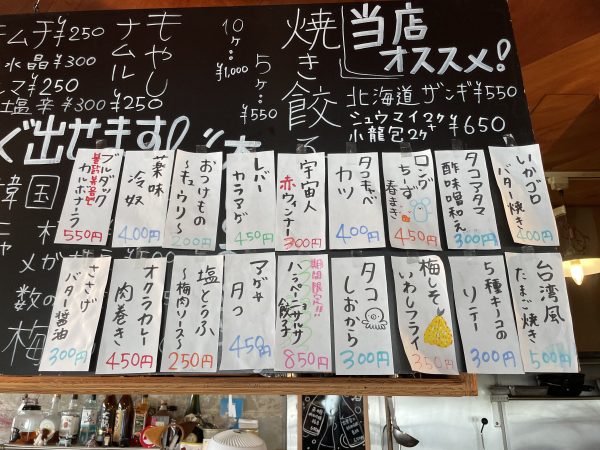 当店
オススメ!
北海道ザンギ¥550
シュウマイ2ケ
小龍包2ケ
¥650
焼き餃子
10ケ…¥1,000
5ケ…¥550
もやし
ナムル
¥250
キムチ¥250
水晶¥300
¥250
塩辛¥300
ぐ出せます!
韓国
いかゴロ
バター焼き
400円
タコアタマ
酢味噌和え
300円
ロング
ちーず
春まき
450円
タコキャベ
カツ
400円
宇宙人
赤ウィンナー
300円
レバー
カラアゲ
450円
おつけもの
~キュウリ~
200円
薬味
冷奴
400円
ブルダック
カルボナーラ
550円
台湾風
たまご焼き
500円
5種キノコの
ソテー
300円
梅しそ
いわしフライ
350円
タコ
しおから
300円
期間限定!!
餃子
850円
アグサ
タコ
450円
塩とうふ
~梅肉ソース~
250円
オクラカレー
肉巻き
450円
ささげ
バター醤油
300円